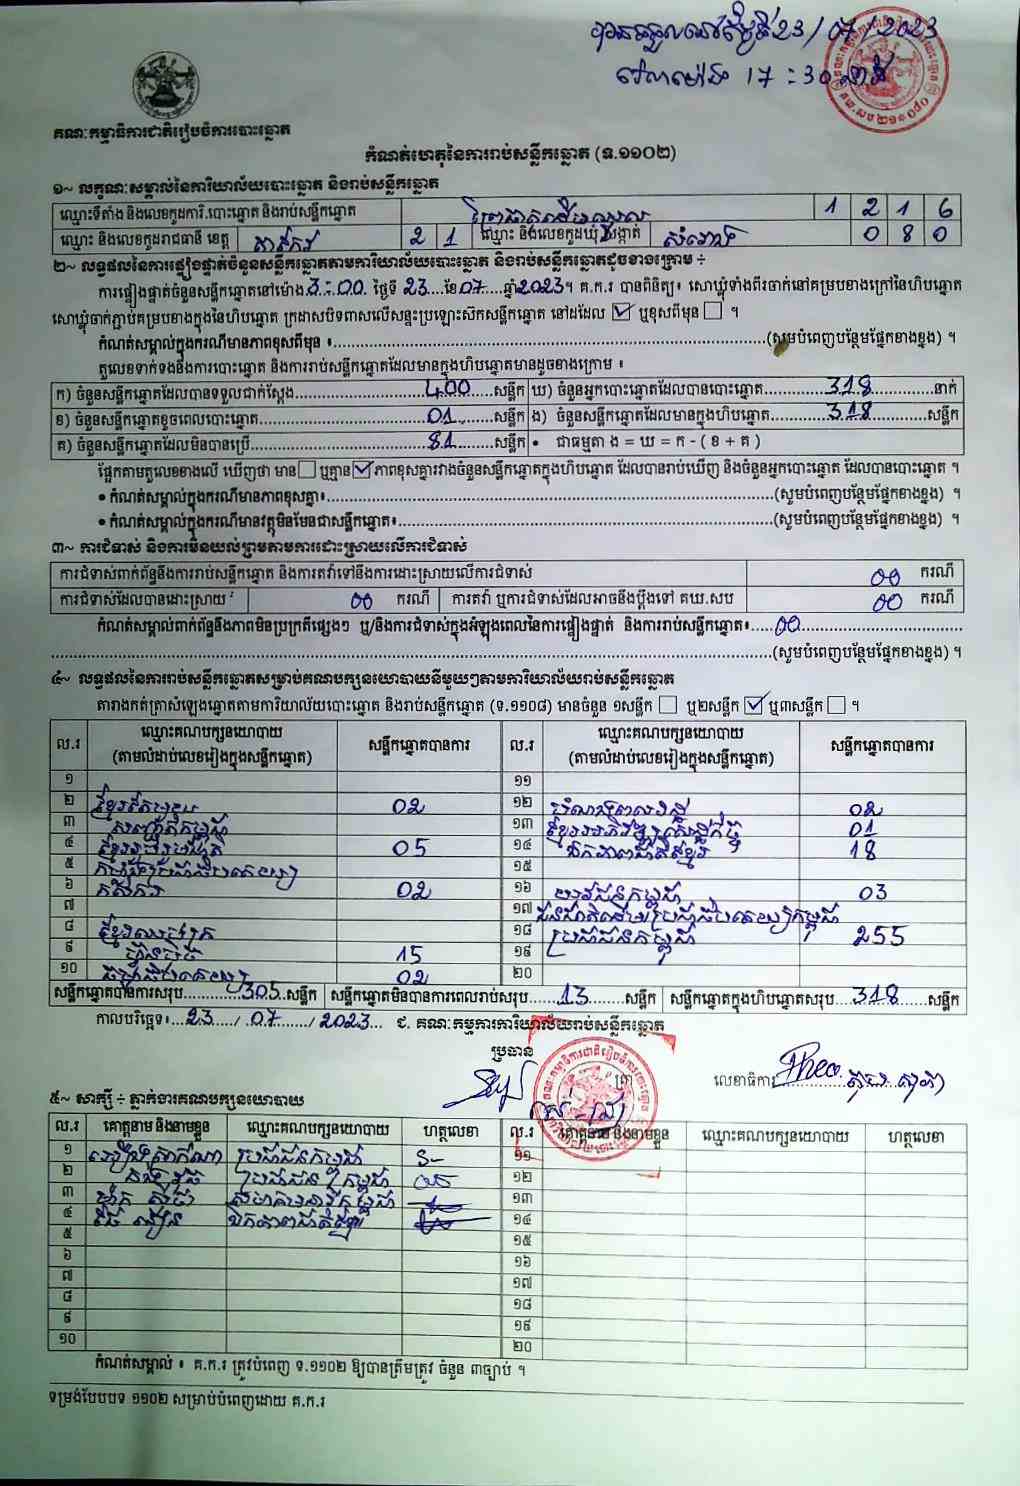 23/07/2023
17:30
គណៈកម្មាធិការជាតិរៀបចំការបោះឆ្នោត
កំណត់ហេតុនៃការរាប់សន្លឹកឆ្នោត (ទ.១១០២)
១~ លក្ខណៈសម្គាល់នៃការិយាល័យបោះឆ្នោត និងរាប់សន្លឹកឆ្នោត
ឈ្មោះទីតាំង និងលេខកូដការិ.បោះឆ្នោត និងរាប់សន្លឹកឆ្នោត 1 2 1 6
ឈ្មោះ និងលេខកូដរាជធានី ខេត្ត តាកែវ 2 1 ឈ្មោះ និងលេខកូដឃុំ សង្កាត់ សំរោង 0 8 0
២~ លទ្ធផលនៃការផ្ទៀងផ្ទាត់ចំនួនសន្លឹកឆ្នោតតាមការិយាល័យបោះឆ្នោត និងរាប់សន្លឹកឆ្នោតដូចខាងក្រោម ÷
ការផ្ទៀងផ្ទាត់ចំនួនសន្លឹកឆ្នោតនៅម៉ោង 3:00 ថ្ងៃទី 23 ខែ 07 ឆ្នាំ 2023។ គ.ក.រ បានពិនិត្យ៖ សោឃ្លុំទាំងពីរចាក់នៅគម្របខាងក្រៅនៃហិបឆ្នោត
សោឃ្លុំចាក់ភ្ជាប់គម្របខាងក្នុងនៃហិបឆ្នោត ក្រដាសបិទពាសលើសន្ទះប្រឡោះស៊កសន្លឹកឆ្នោត នៅដដែល ☑ ឬខុសពីមុន ☐ ។
កំណត់សម្គាល់ក្នុងករណីមានភាពខុសពីមុន ៖ (សូមបំពេញបន្ថែមផ្នែកខាងខ្នង) ។
តួលេខទាក់ទងនឹងការបោះឆ្នោត និងការរាប់សន្លឹកឆ្នោតដែលមានក្នុងហិបឆ្នោតមានដូចខាងក្រោម ៖
ក) ចំនួនសន្លឹកឆ្នោតដែលបានទទួលជាក់ស្តែង 400 សន្លឹក ឃ) ចំនួនអ្នកបោះឆ្នោតដែលបានបោះឆ្នោត 318 នាក់
ខ) ចំនួនសន្លឹកឆ្នោតខូចពេលបោះឆ្នោត 01 សន្លឹក ង) ចំនួនសន្លឹកឆ្នោតដែលមានក្នុងហិបឆ្នោត 318 សន្លឹក
គ) ចំនួនសន្លឹកឆ្នោតដែលមិនបានប្រើ 81 សន្លឹក • ជាធម្មតា ង = ឃ = ក - ( ខ + គ )
ផ្អែកតាមតួលេខខាងលើ ឃើញថា មាន ☐ ឬគ្មាន ☑ ភាពខុសគ្នារវាងចំនួនសន្លឹកឆ្នោតក្នុងហិបឆ្នោត ដែលបានរាប់ឃើញ និងចំនួនអ្នកបោះឆ្នោត ដែលបានបោះឆ្នោត ។
• កំណត់សម្គាល់ក្នុងករណីមានភាពខុសគ្នា៖ (សូមបំពេញបន្ថែមផ្នែកខាងខ្នង) ។
• កំណត់សម្គាល់ក្នុងករណីមានវត្ថុមិនមែនជាសន្លឹកឆ្នោត៖ (សូមបំពេញបន្ថែមផ្នែកខាងខ្នង) ។
៣~ ការជំទាស់ និងការមិនយល់ព្រមតាមការដោះស្រាយលើការជំទាស់
ការជំទាស់ពាក់ព័ន្ធនឹងការរាប់សន្លឹកឆ្នោត និងការតវ៉ាទៅនឹងការដោះស្រាយលើការជំទាស់ 00 ករណី
ការជំទាស់ដែលបានដោះស្រាយ 00 ករណី ការតវ៉ា ឬការជំទាស់ដែលអាចនឹងប្តឹងទៅ គឃ.សប 00 ករណី
កំណត់សម្គាល់ពាក់ព័ន្ធនឹងភាពមិនប្រក្រតីផ្សេងៗ ឬ/និងការជំទាស់ក្នុងអំឡុងពេលនៃការផ្ទៀងផ្ទាត់ និងការរាប់សន្លឹកឆ្នោត៖ 00
(សូមបំពេញបន្ថែមផ្នែកខាងខ្នង) ។
៤~ លទ្ធផលនៃការរាប់សន្លឹកឆ្នោតសម្រាប់គណបក្សនយោបាយនីមួយៗតាមការិយាល័យរាប់សន្លឹកឆ្នោត
តារាងកត់ត្រាសំឡេងឆ្នោតតាមការិយាល័យបោះឆ្នោត និងរាប់សន្លឹកឆ្នោត (ទ.១១០៨) មានចំនួន ១សន្លឹក ☐ ឬ២សន្លឹក ☑ ឬ៣សន្លឹក ☐ ។
ល.រ ឈ្មោះគណបក្សនយោបាយ (តាមលំដាប់លេខរៀងក្នុងសន្លឹកឆ្នោត) សន្លឹកឆ្នោតបានការ ល.រ ឈ្មោះគណបក្សនយោបាយ (តាមលំដាប់លេខរៀងក្នុងសន្លឹកឆ្នោត) សន្លឹកឆ្នោតបានការ
១ ១១
២ 02 ១២ 02
៣ ១៣ 01
៤ 05 ១៤ ឯកភាពជាតិខ្មែរ 18
៥
៦ កសិករ 02 ១៦ យុវជនកម្ពុជា 03
៧ ១៧
៨ ១៨ ប្រជាជនកម្ពុជា 255
៩ 15 ១៩
១០ 02 ២០
សន្លឹកឆ្នោតបានការសរុប 305 សន្លឹក សន្លឹកឆ្នោតមិនបានការពេលរាប់សរុប 13 សន្លឹក សន្លឹកឆ្នោតក្នុងហិបឆ្នោតសរុប 318 សន្លឹក
កាលបរិច្ឆេទ៖ 23 / 07 / 2023 ជ. គណៈកម្មការការិយាល័យរាប់សន្លឹកឆ្នោត
ប្រធាន
លេខាធិការ
៥~ សាក្សី ÷ ភ្នាក់ងារគណបក្សនយោបាយ
ល.រ គោត្តនាម និងនាមខ្លួន ឈ្មោះគណបក្សនយោបាយ ហត្ថលេខា ល.រ គោត្តនាម និងនាមខ្លួន ឈ្មោះគណបក្សនយោបាយ ហត្ថលេខា
១ ប្រជាជនកម្ពុជា ១១
២ ប្រជាជនកម្ពុជា ១២
៣ ១៣
៤ ឯកភាពជាតិខ្មែរ ១៤
៥ ១៥
៦ ១៦
៧ ១៧
៨ ១៨
៩ ១៩
១០ ២០
កំណត់សម្គាល់ ៖ គ.ក.រ ត្រូវបំពេញ ទ.១១០២ ឱ្យបានត្រឹមត្រូវ ចំនួន ៣ច្បាប់ ។
ទម្រង់បែបបទ ១១០២ សម្រាប់បំពេញដោយ គ.ក.រ